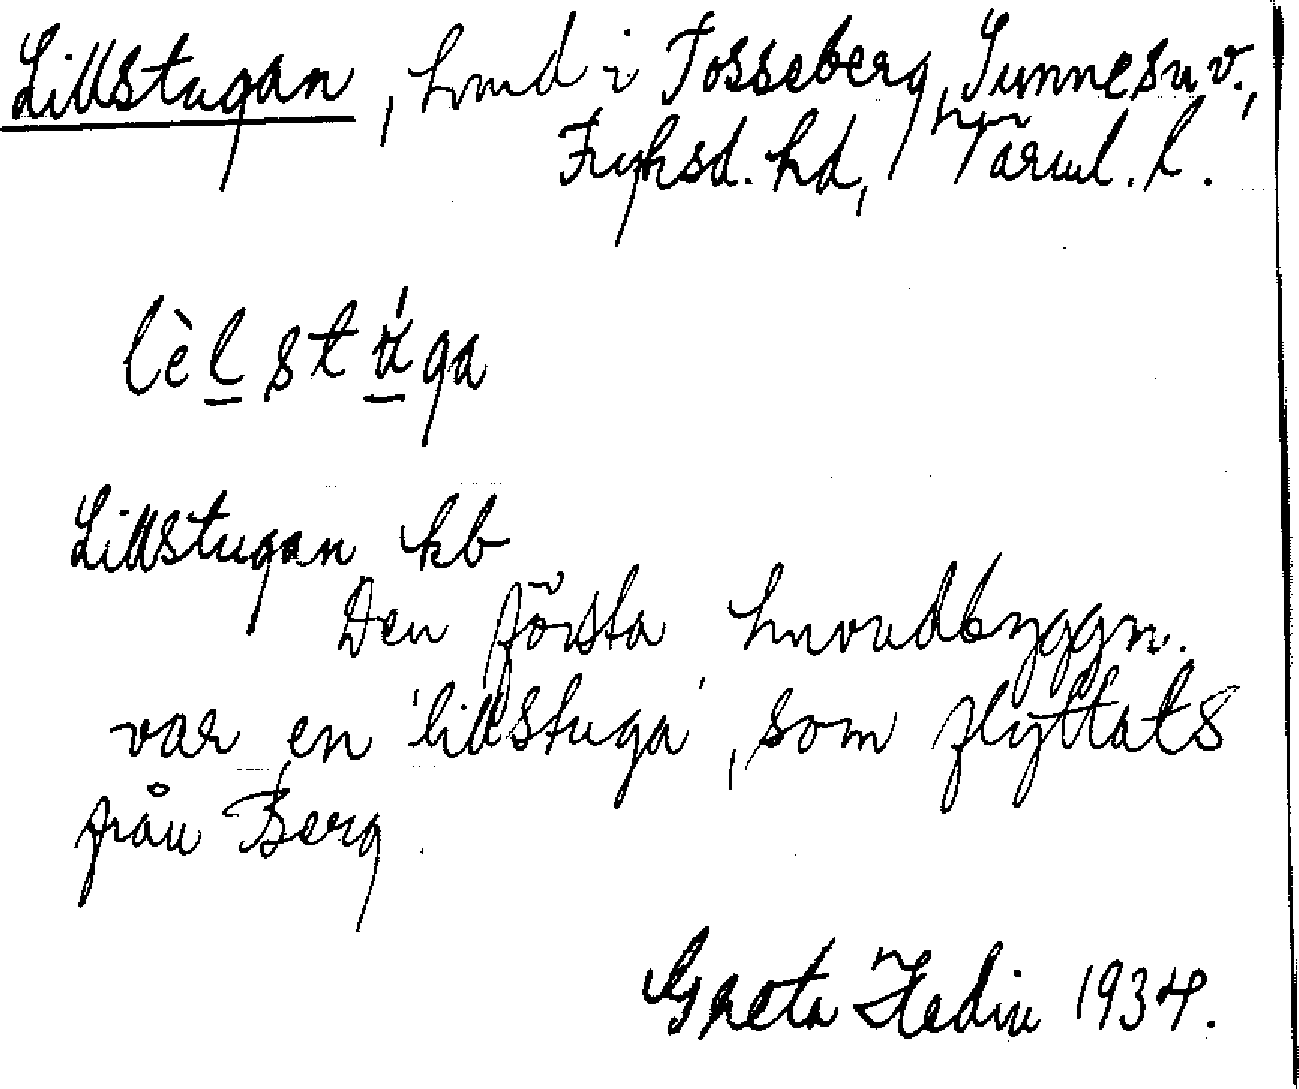 Lillstugan, hmd i Tosseberg, Sunne sn v.,
Fryksd. hd, Värml. l.
lèlstúga
Lillstugan kb
Den första huvudbyggn.
var en 'lillstuga', som flyttats
från Berg.
Greta Hedin 1934.